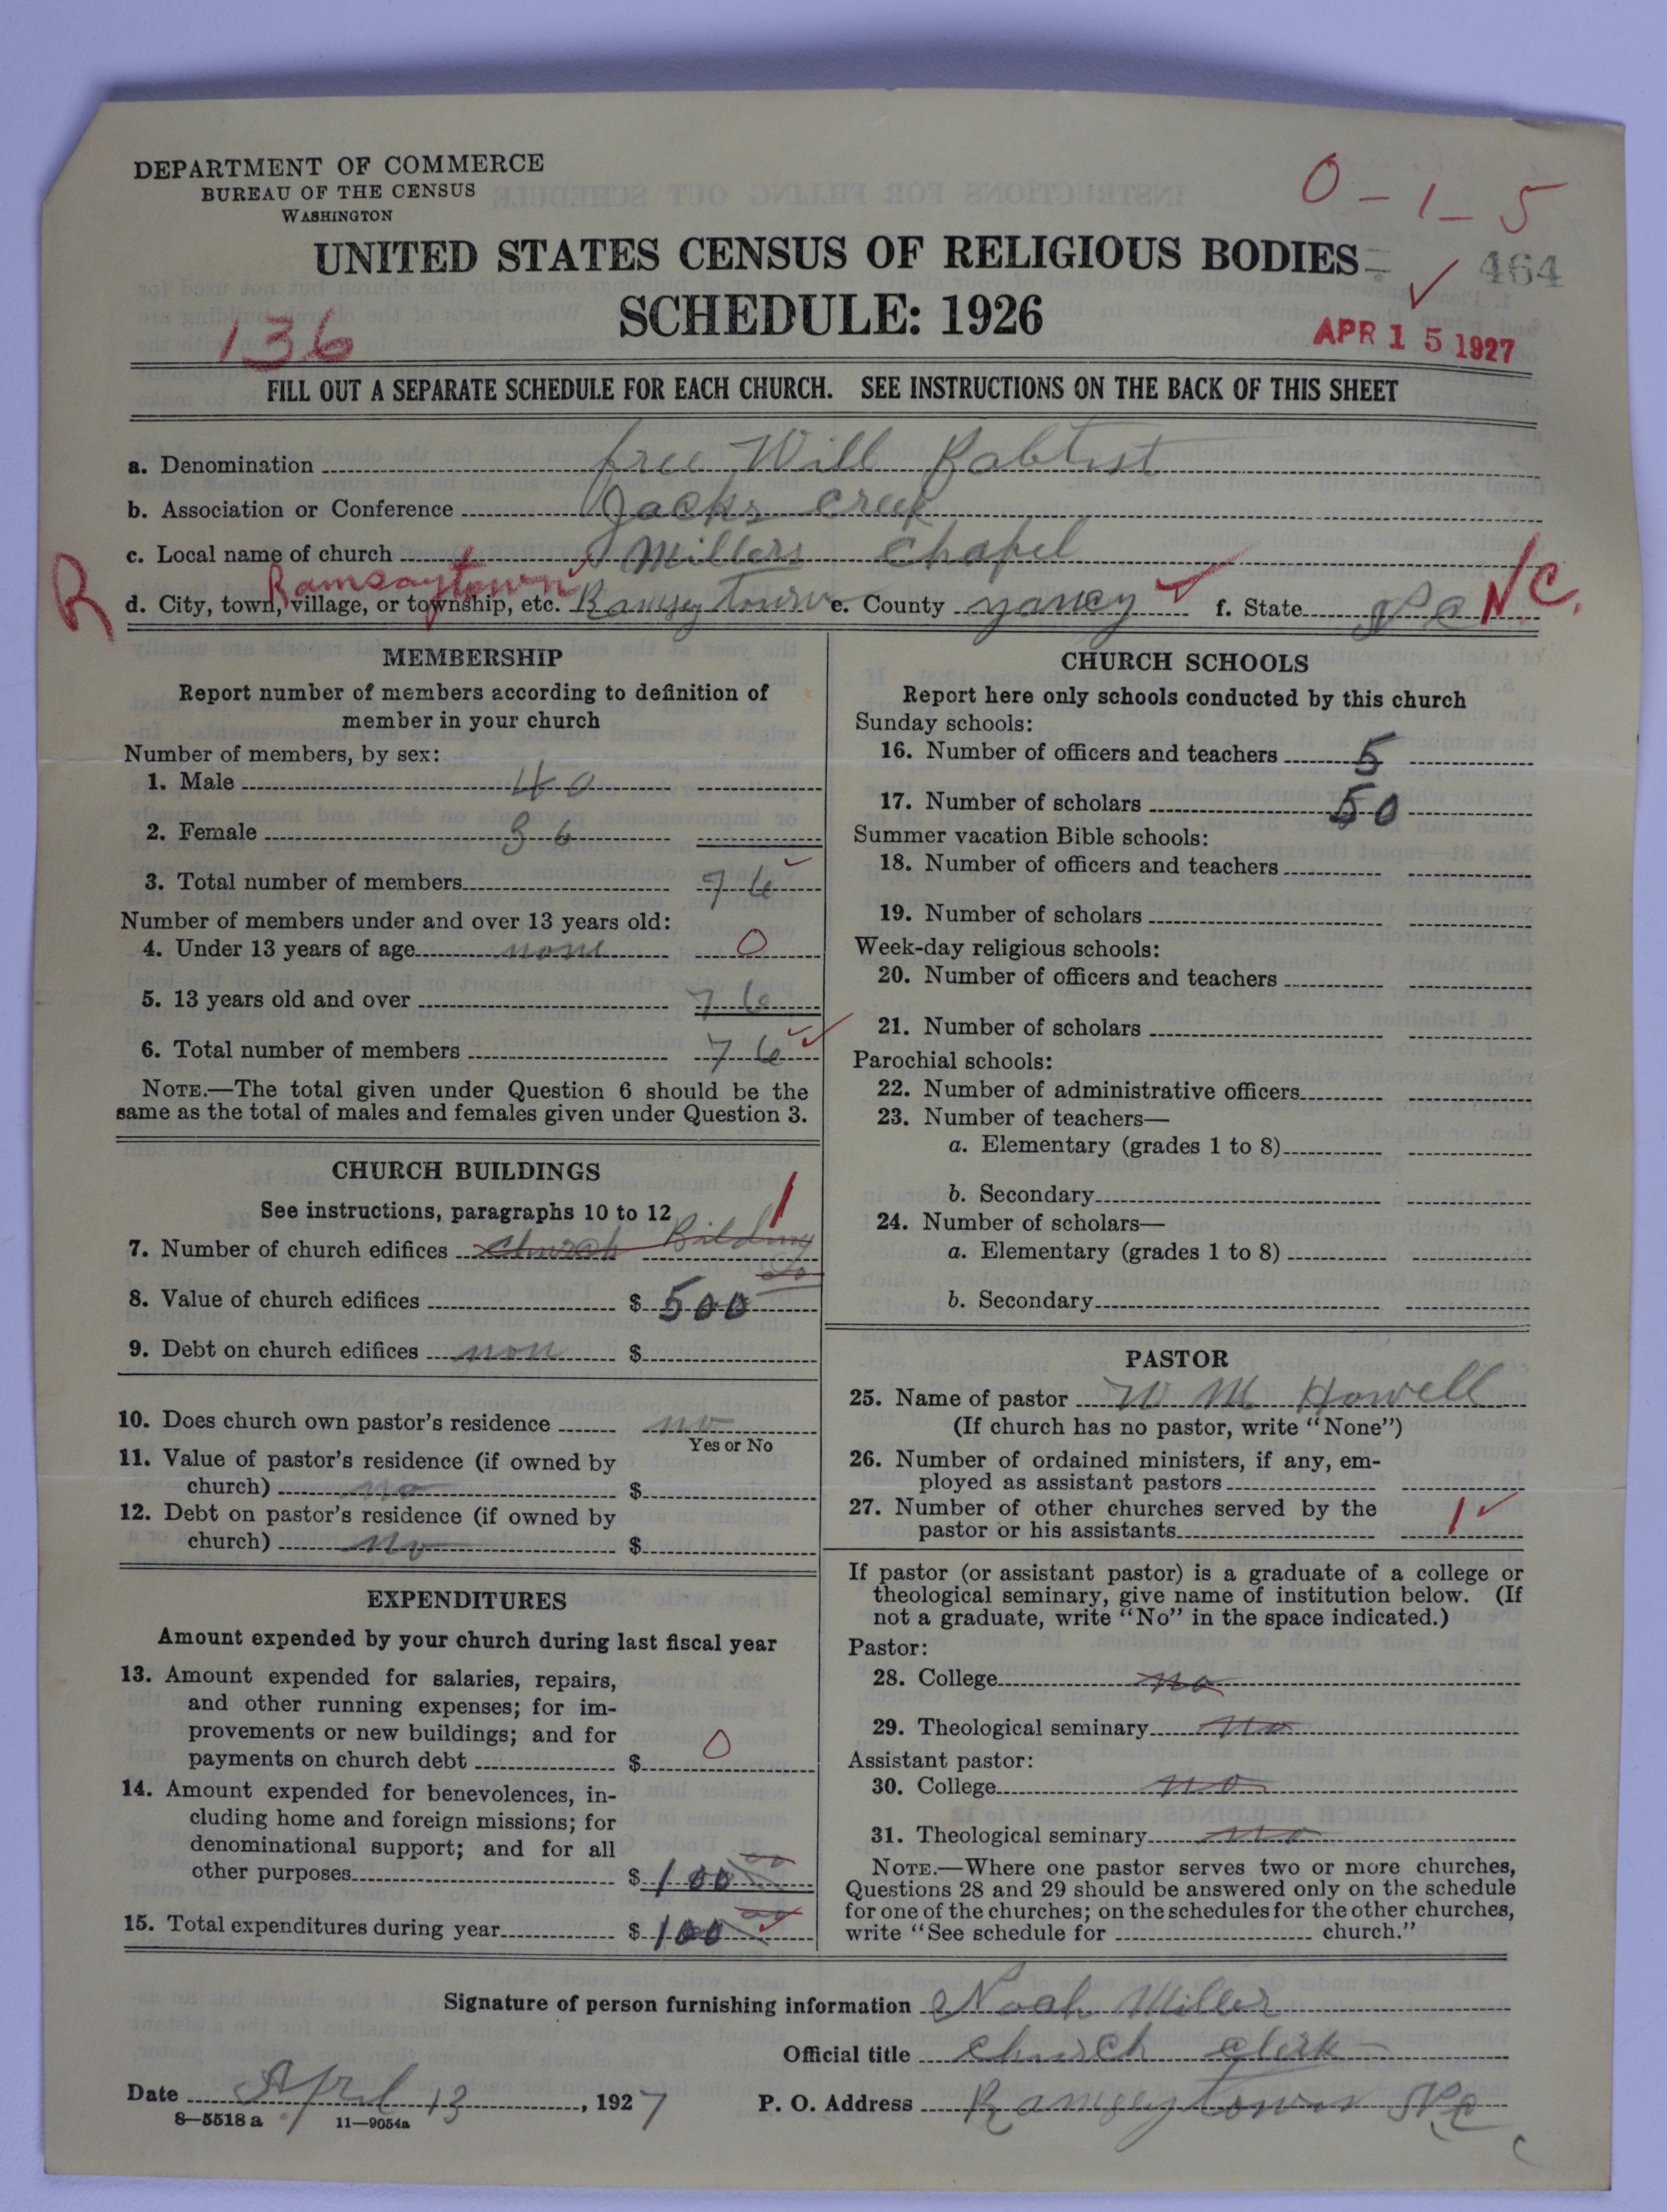 DEPARTMENT OF COMMERCE
BUREAU OF THE CENSUS
WASHINGTON
0-1-5
UNITED STATES CENSUS OF RELIGIOUS BODIES
464
SCHEDULE: 1926
136
APR 15 1927
FILL OUT A SEPARATE SCHEDULE FOR EACH CHURCH. SEE INSTRUCTIONS ON THE BACK OF THIS SHEET
a. Denomination free Will Babtist
b. Association or Conference Jacks creek
c. Local name of church Millers Chapel
R Ramsaytown
d. City, town, village, or township, etc. Ramsey town e. County yancy f. State N.C N.C.
MEMBERSHIP
Report number of members according to definition of
member in your church
Number of members, by sex:
1. Male 40
2. Female 36
3. Total number of members 76
Number of members under and over 13 years old:
4. Under 13 years of age none 0
5. 13 years old and over 76
6. Total number of members 76
NOTE.—The total given under Question 6 should be the
same as the total of males and females given under Question 3.
CHURCH BUILDINGS
See instructions, paragraphs 10 to 12
7. Number of church edifices church Bilding 1
8. Value of church edifices $ 500 00
9. Debt on church edifices non $
10. Does church own pastor's residence no
Yes or No
11. Value of pastor's residence (if owned by
church) no $
12. Debt on pastor's residence (if owned by
church) no $
EXPENDITURES
Amount expended by your church during last fiscal year
13. Amount expended for salaries, repairs,
and other running expenses; for im-
provements or new buildings; and for
payments on church debt $ 0
14. Amount expended for benevolences, in-
cluding home and foreign missions; for
denominational support; and for all
other purposes $ 100 00
15. Total expenditures during year $ 100 00
CHURCH SCHOOLS
Report here only schools conducted by this church
Sunday schools:
16. Number of officers and teachers 5
17. Number of scholars 50
Summer vacation Bible schools:
18. Number of officers and teachers
19. Number of scholars
Week-day religious schools:
20. Number of officers and teachers
21. Number of scholars
Parochial schools:
22. Number of administrative officers
23. Number of teachers—
a. Elementary (grades 1 to 8)
b. Secondary
24. Number of scholars—
a. Elementary (grades 1 to 8)
b. Secondary
PASTOR
25. Name of pastor W M Howell
(If church has no pastor, write "None")
26. Number of ordained ministers, if any, em-
ployed as assistant pastors
27. Number of other churches served by the
pastor or his assistants 1
If pastor (or assistant pastor) is a graduate of a college or
theological seminary, give name of institution below. (If
not a graduate, write "No" in the space indicated.)
Pastor:
28. College no
29. Theological seminary no
Assistant pastor:
30. College no
31. Theological seminary no
NOTE.—Where one pastor serves two or more churches,
Questions 28 and 29 should be answered only on the schedule
for one of the churches; on the schedules for the other churches,
write "See schedule for church."
Signature of person furnishing information Noah Miller
Official title church clerk
Date April 13, 1927 P. O. Address Ramseytown N.C
8—5518 a 11—9054a